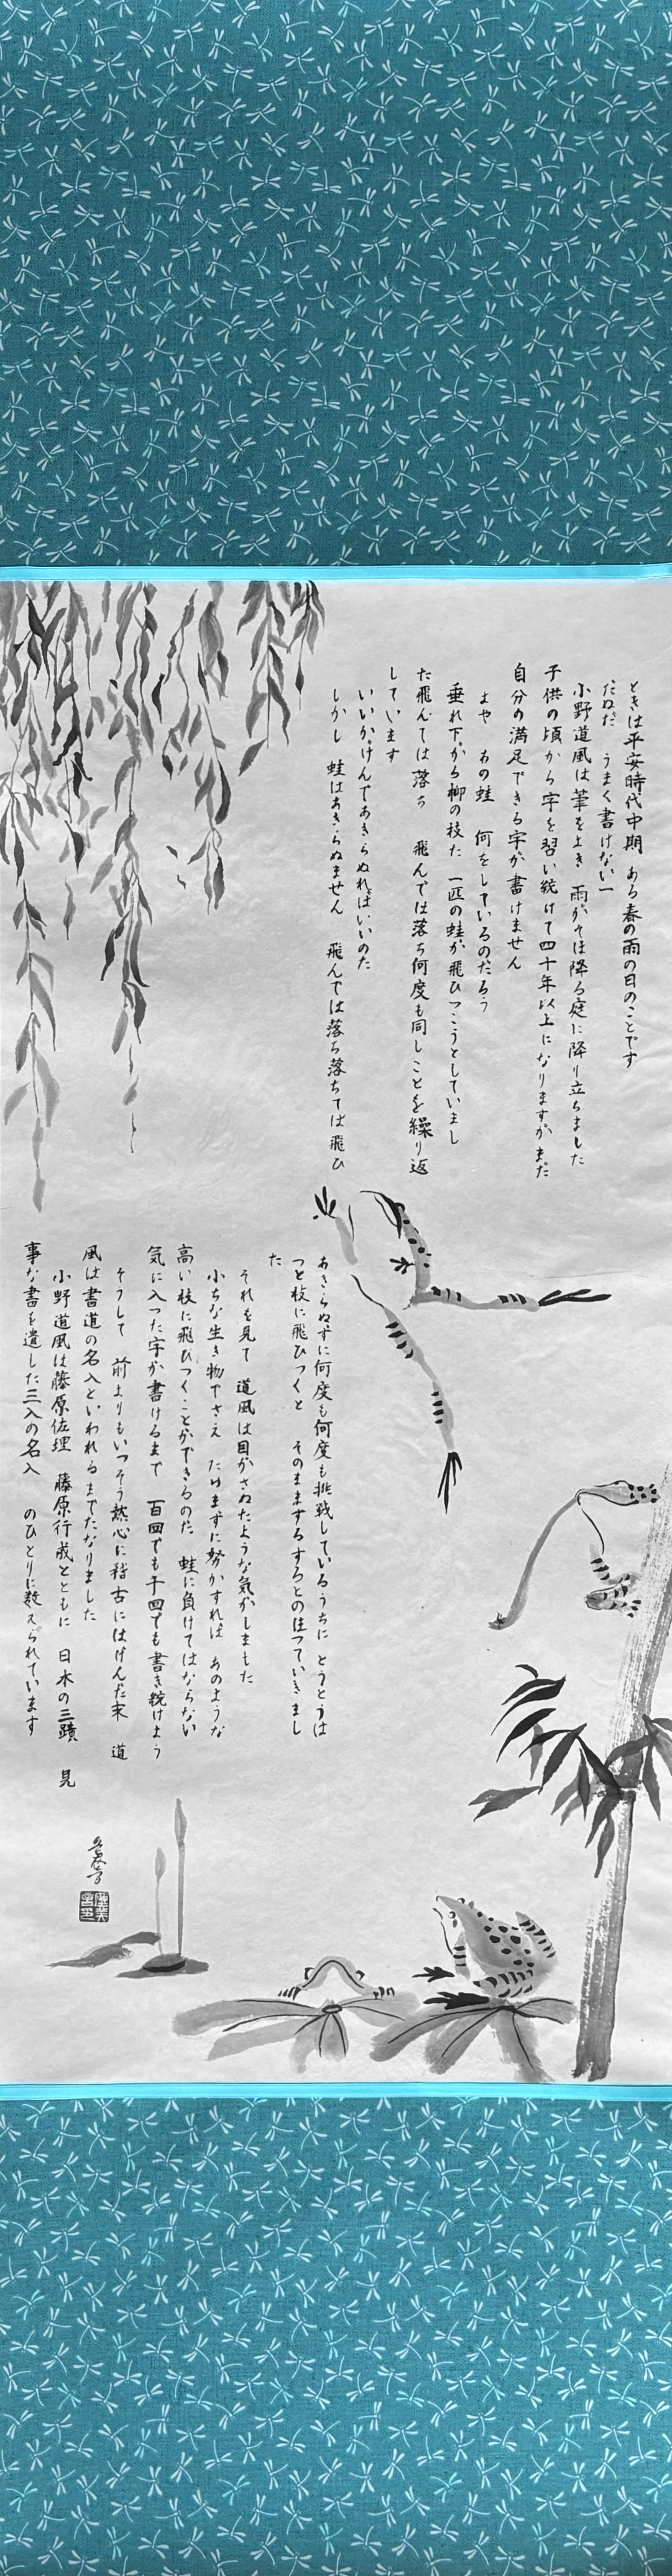 ときは平安時代中期 ある春の雨の日のことです
だめだ うまく書けないー
小野道風は筆をおき 雨がそぼ降る庭に降り立ちました
子供の頃から字を習い続けて四十年以上になりますがまだ
自分の満足できる字が書けません
おや あの蛙 何をしているのだろう
垂れ下がる柳の枝に 一匹の蛙が飛びつこうとしていまし
た飛んでは落ち 飛んでは落ち何度も同じことを繰り返
しています
いいかげんであきらめればいいのに
しかし 蛙はあきらめません 飛んでは落ち落ちては飛び
あきらめずに何度も何度も挑戦しているうちに とうとうは
っと枝に飛びつくと そのまますするするとの住つていきまし
た
それを見て 道風は目がさめたような気がしました
小さな生き物でさえ たゆまずに努力すれば あのような
高い枝に飛びつくことができるのだ 蛙に負けてはならない
気に入った字が書けるまで 百回でも千回でも書き続けよう
そうして 前よりもいっそう熱心に稽古にはげんだ末 道
風は書道の名人といわれるまでになりました
小野道風は藤原佐理 藤原行成とともに 日本の三蹟 見
事な書を遺した三人の名人 のひとりに数えられています